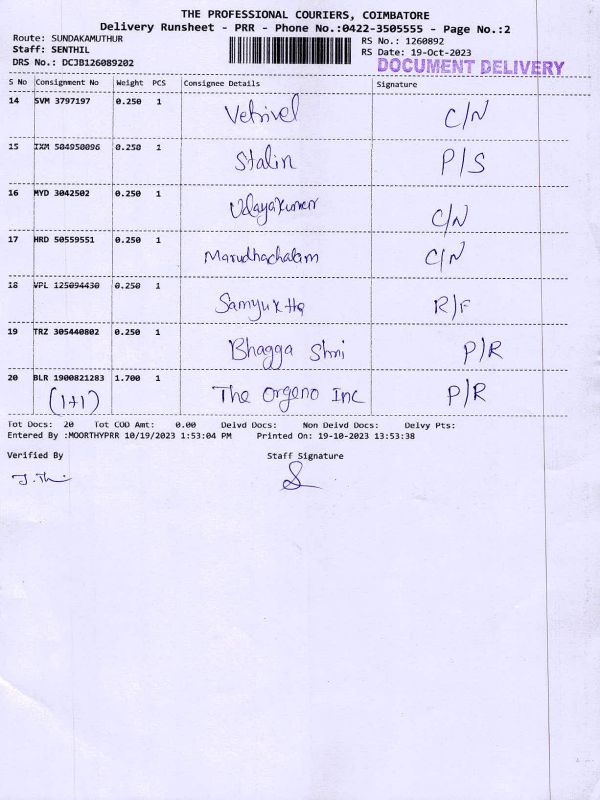 THE PROFESSIONAL COURIERS, COIMBATORE
Delivery Runsheet - PRR - Phone No.:0422-3505555 - Page No.:2
Route: SUNDAKAMUTHUR
Staff: SENTHIL
DRS No.: DCJB126089202
RS No.: 1260892
RS Date: 19-Oct-2023
DOCUMENT DELIVERY
S No Consignment No Weight PCS Consignee Details Signature
14 SVM 3797197 0.250 1 Vetrivel C/N
15 IXM 504950096 0.250 1 Stalin P/S
16 MYD 3042502 0.250 1 Udayakumar C/N
17 HRD 50559551 0.250 1 Marudhachalam C/N
18 VPL 125094430 0.250 1 Samyuktha R/F
19 TRZ 305440802 0.250 1 Bhagga Shri P/R
20 BLR 1900821283 1.700 1 The Orgeno Inc P/R
(1+1)
Tot Docs: 20 Tot COD Amt: 0.00 Delvd Docs: Non Delvd Docs: Delvy Pts:
Entered By :MOORTHYPRR 10/19/2023 1:53:04 PM Printed On: 19-10-2023 13:53:38
Verified By Staff Signature